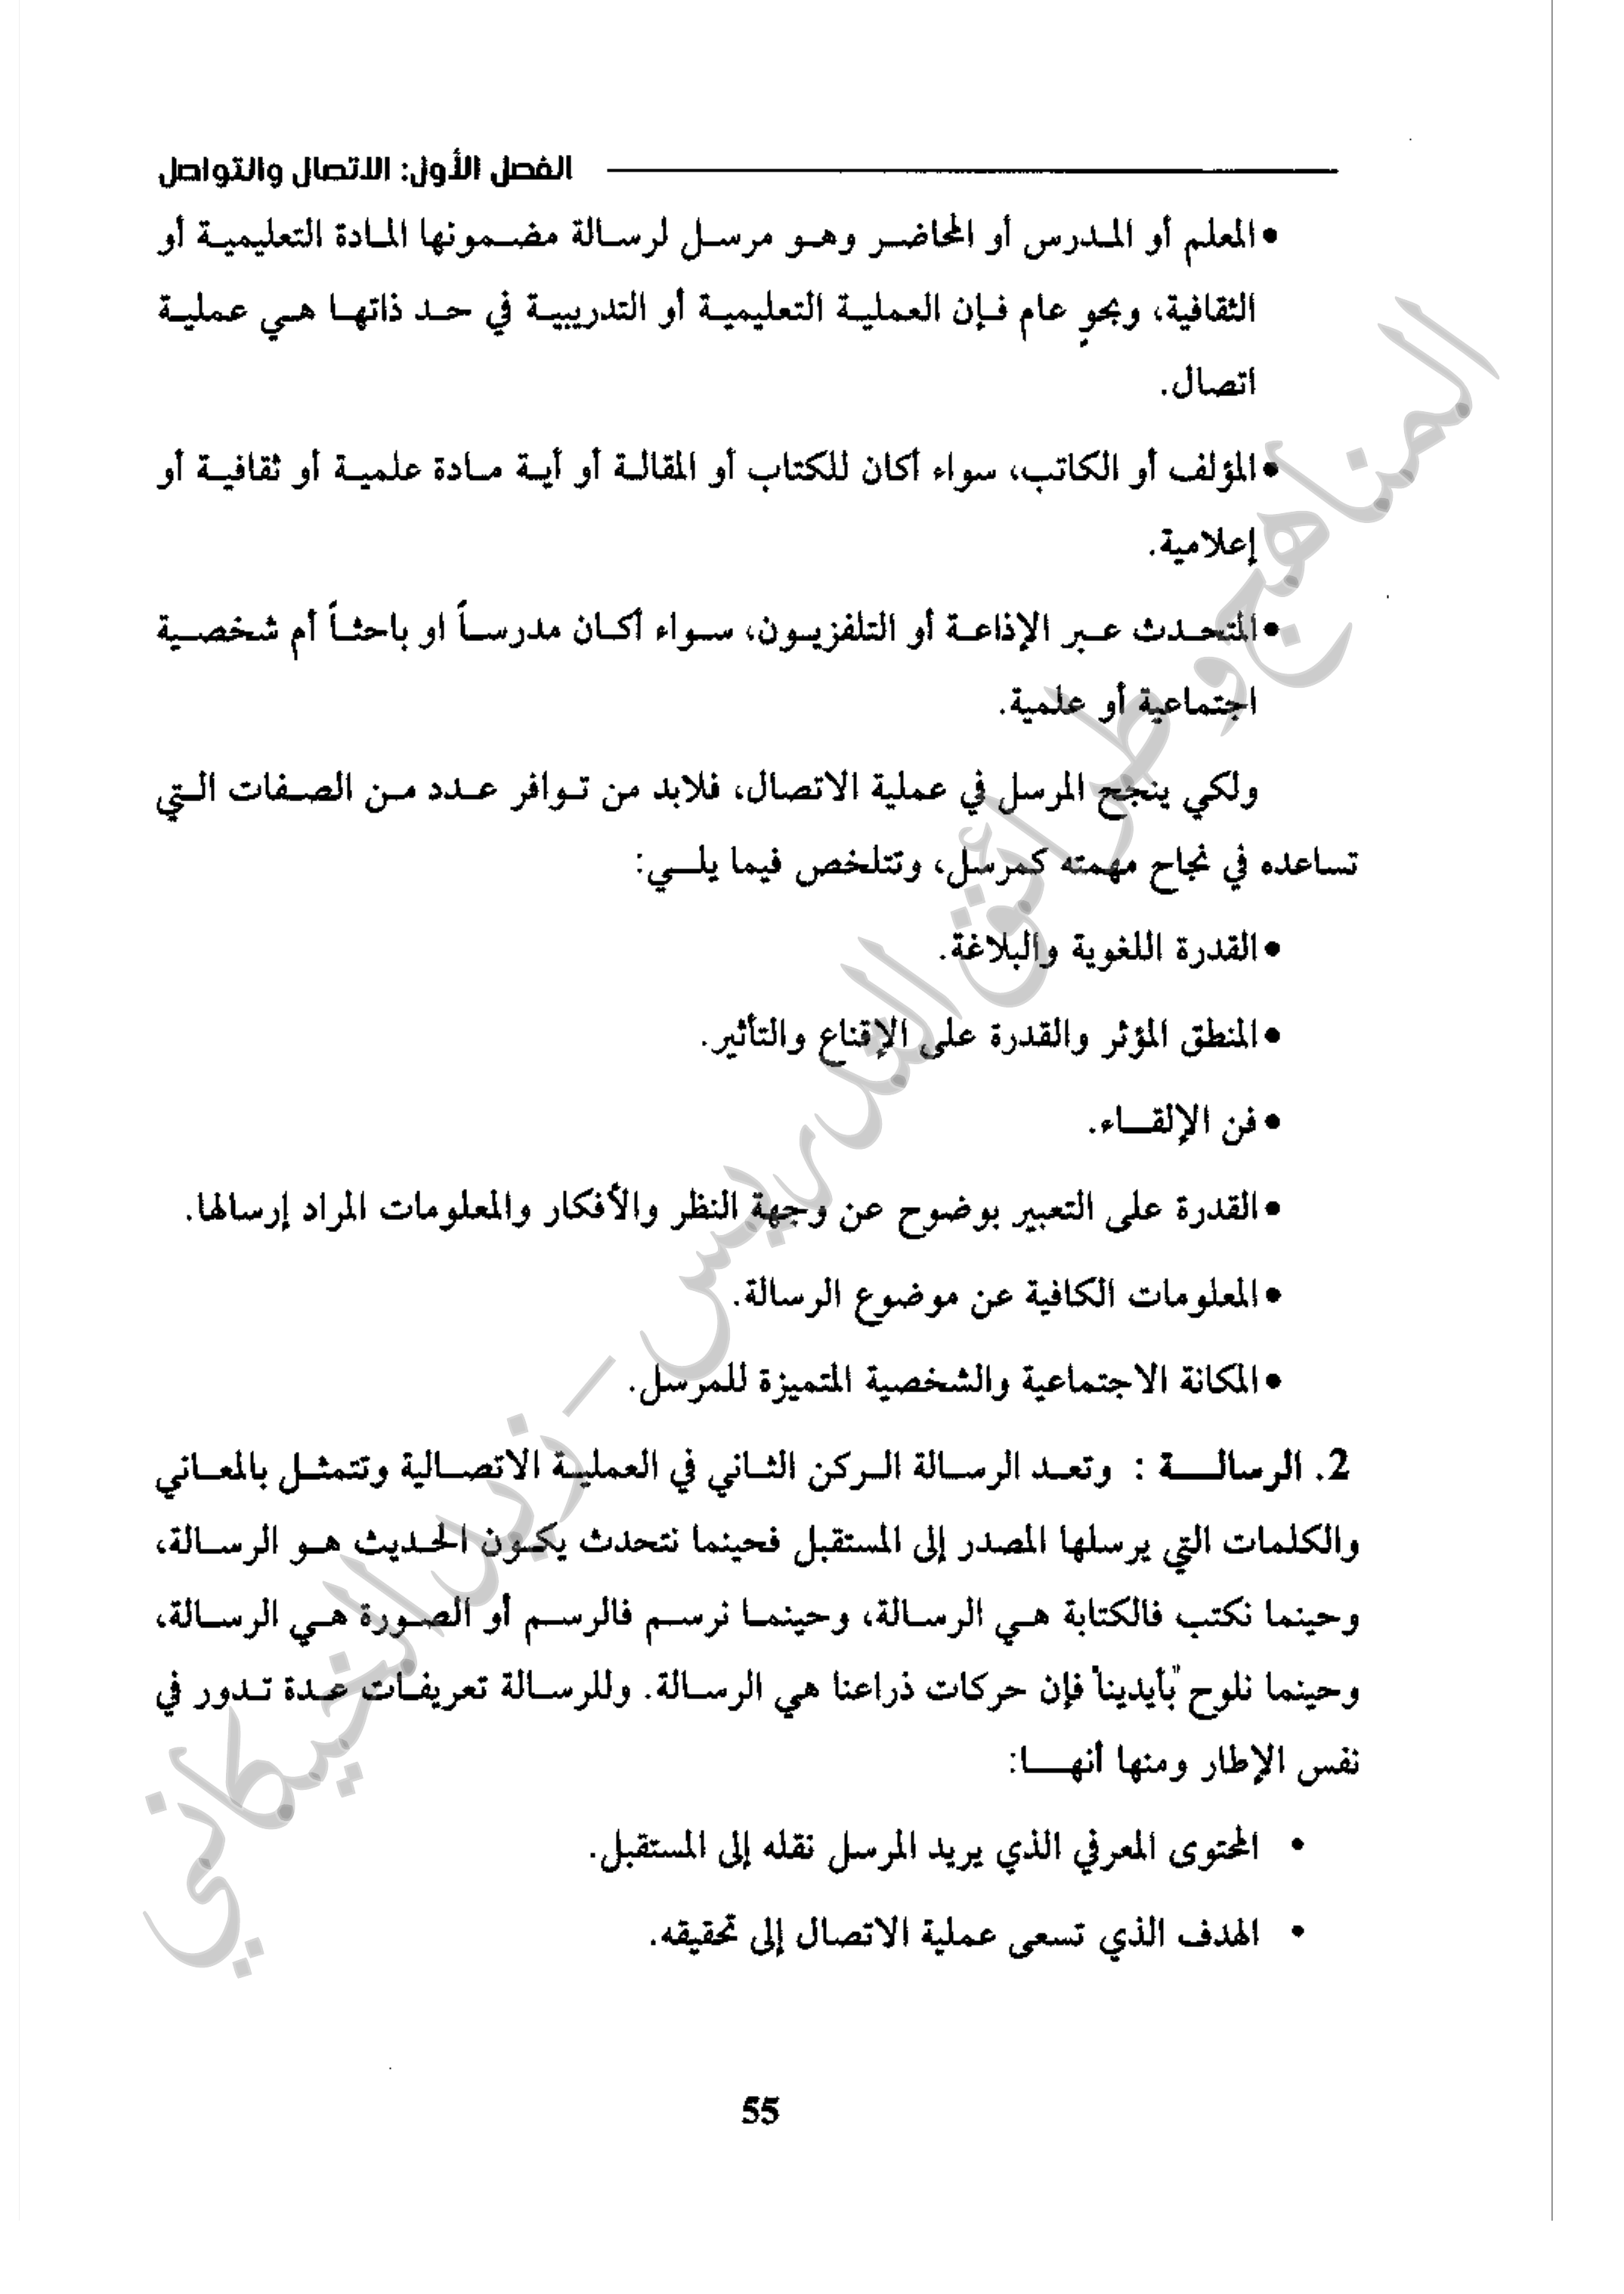 الفصل الأول: الاتصال والتواصل
•المعلم أو المدرس أو المحاضر وهو مرسل لرسالة مضمونها المادة التعليمية أو
الثقافية، وبحوٍ عام فإن العملية التعليمية أو التدريبية في حد ذاتها هي عملية
اتصال.
•المؤلف أو الكاتب، سواء أكان للكتاب أو المقالة أو أية مادة علمية أو ثقافية أو
إعلامية.
•المتحدث عبر الإذاعة أو التلفزيون، سواء أكان مدرساً او باحثاً أم شخصية
اجتماعية أو علمية.
ولكي ينجح المرسل في عملية الاتصال، فلابد من توافر عدد من الصفات التي
تساعده في نجاح مهمته كمرسل، وتتلخص فيما يلي:
•القدرة اللغوية والبلاغة.
•المنطق المؤثر والقدرة على الإقناع والتأثير.
•فن الإلقاء.
•القدرة على التعبير بوضوح عن وجهة النظر والأفكار والمعلومات المراد إرسالها.
•المعلومات الكافية عن موضوع الرسالة.
•المكانة الاجتماعية والشخصية المتميزة للمرسل.
2. الرسالة : وتعد الرسالة الركن الثاني في العملية الاتصالية وتتمثل بالمعاني
والكلمات التي يرسلها المصدر إلى المستقبل فحينما نتحدث يكون الحديث هو الرسالة،
وحينما نكتب فالكتابة هي الرسالة، وحينما نرسم فالرسم أو الصورة هي الرسالة،
وحينما نلوح "بأيدينا" فإن حركات ذراعنا هي الرسالة. وللرسالة تعريفات عدة تدور في
نفس الإطار ومنها أنها:
• المحتوى المعرفي الذي يريد المرسل نقله إلى المستقبل.
• الهدف الذي تسعى عملية الاتصال إلى تحقيقه.
55
المناهج وطرائق التدريس - زيد الخيكاني